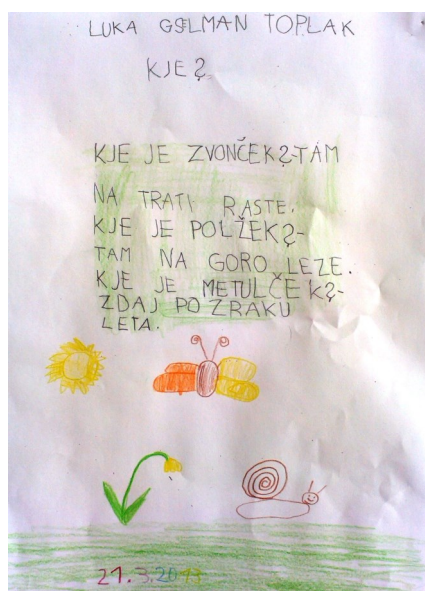 LUKA GSLMAN TOPLAK
KJE?
KJE JE ZVONČEK?-TAM
NA TRATI RASTE.
KJE JE POLŽEK?-
TAM NA GORO LEZE.
KJE JE METULČEK?-
ZDAJ PO ZRAKU
LETA.